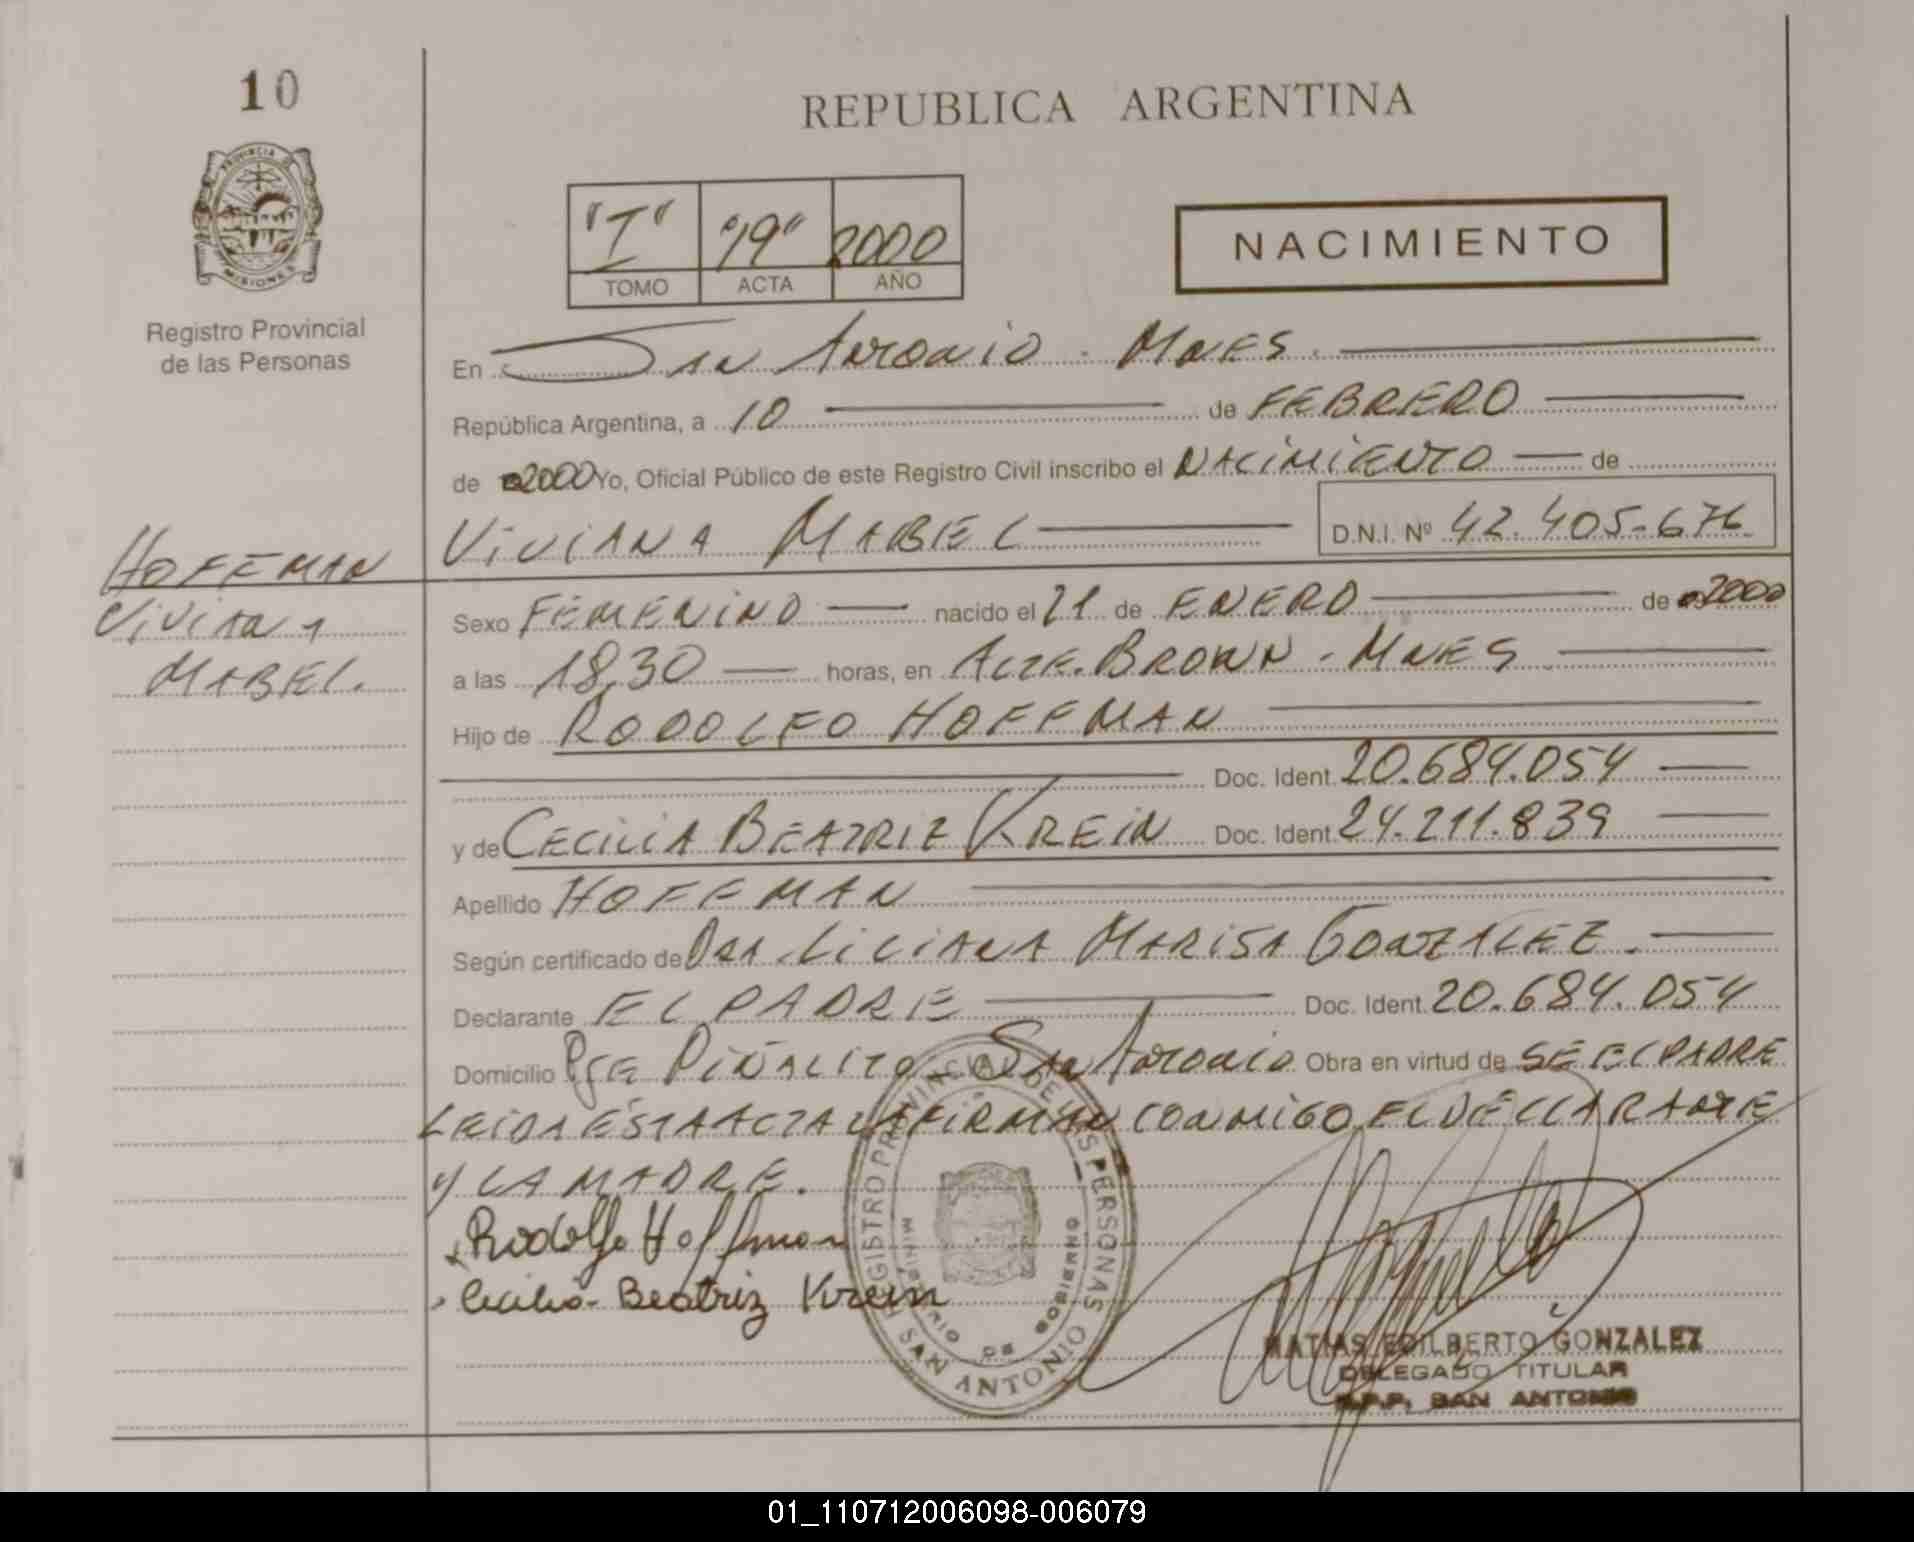 10
REPUBLICA ARGENTINA
PROVINCIA DE
MISIONES
Registro Provincial
de las Personas
"I" "19" 2000
TOMO ACTA AÑO
NACIMIENTO
En San Antonio - Mnes.
República Argentina, a 10 de FEBRERO
de 2000 Yo, Oficial Público de este Registro Civil inscribo el NACIMIENTO de
VIVIANA MABEL D.N.I. Nº 42.405.676
HOFFMAN
VIVIANA
MABEL.
Sexo FEMENINO nacido el 21 de ENERO de 2000
a las 18,30 horas, en ALTE. BROWN - MNES
Hijo de RODOLFO HOFFMAN
Doc. Ident. 20.684.054
y de CECILIA BEATRIZ KREIN Doc. Ident. 24.211.839
Apellido HOFFMAN
Según certificado de DRA. LILIANA MARISA GONZALEZ.
Declarante EL PADRE Doc. Ident. 20.684.054
Domicilio PJE PIÑALITO San Antonio Obra en virtud de SE EL PADRE
LEIDA ESTA ACTA LA FIRMAN CONMIGO EL DECLARANTE
Y LA MADRE.
Rodolfo Hoffman
Cecilia Beatriz Krein
REGISTRO PROVINCIAL DE LAS PERSONAS
MINISTERIO DE GOBIERNO
SAN ANTONIO
MATIAS EDILBERTO GONZALEZ
DELEGADO TITULAR
R.P.P. SAN ANTONIO
01_110712006098-006079